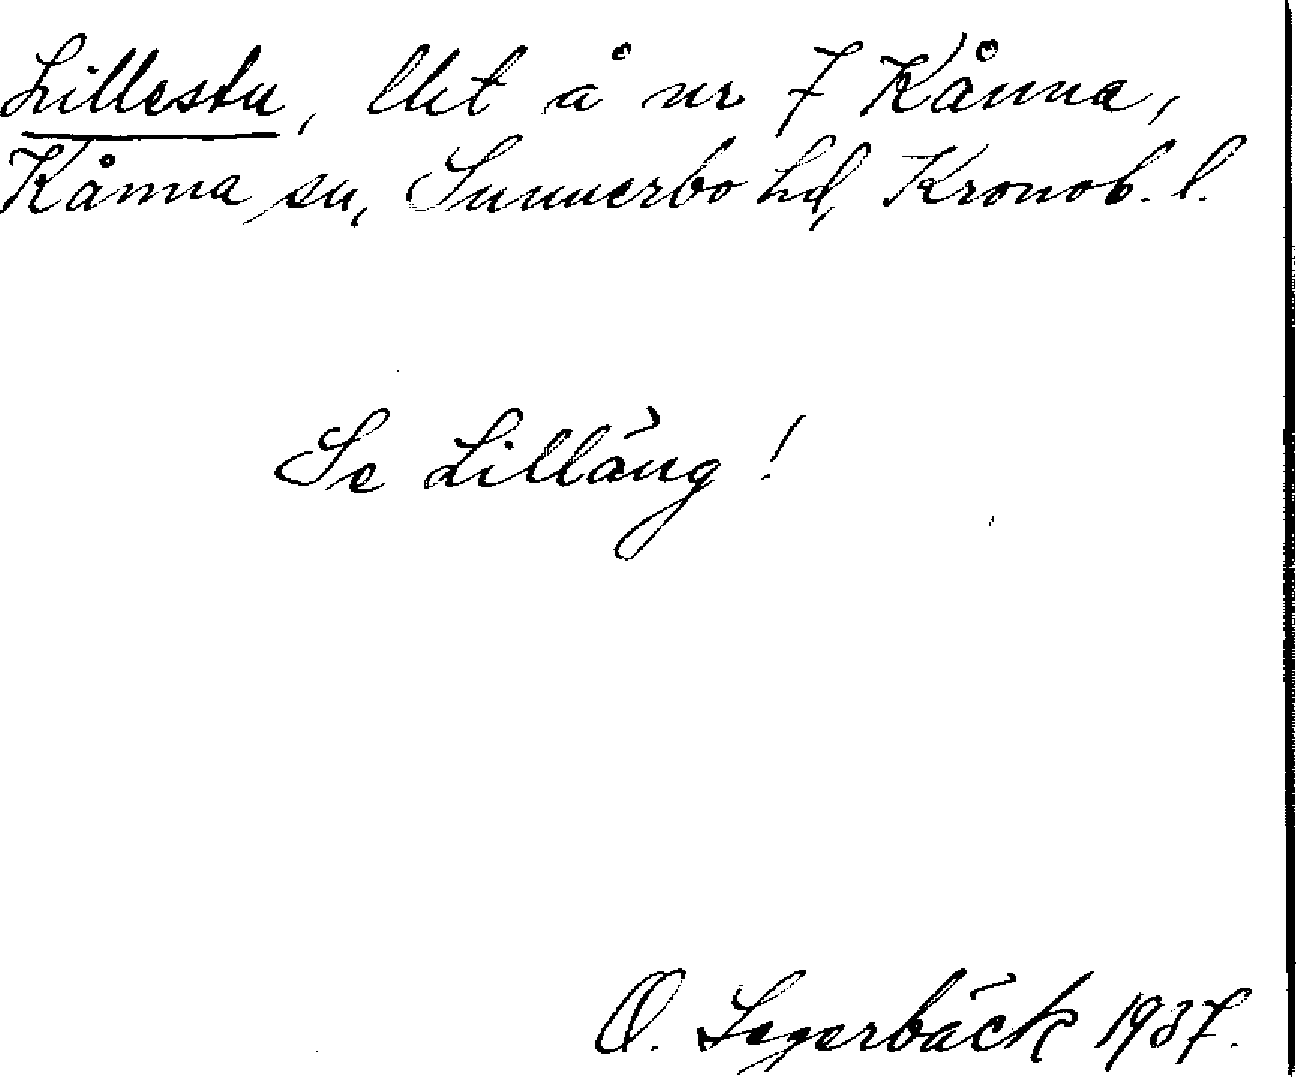 Lillestu, lht å nr 7 Kånna,
Kånna sn, Sunnerbo hd, Kronob. l.
Se Lilläng!
O. Segerbäck 1937.